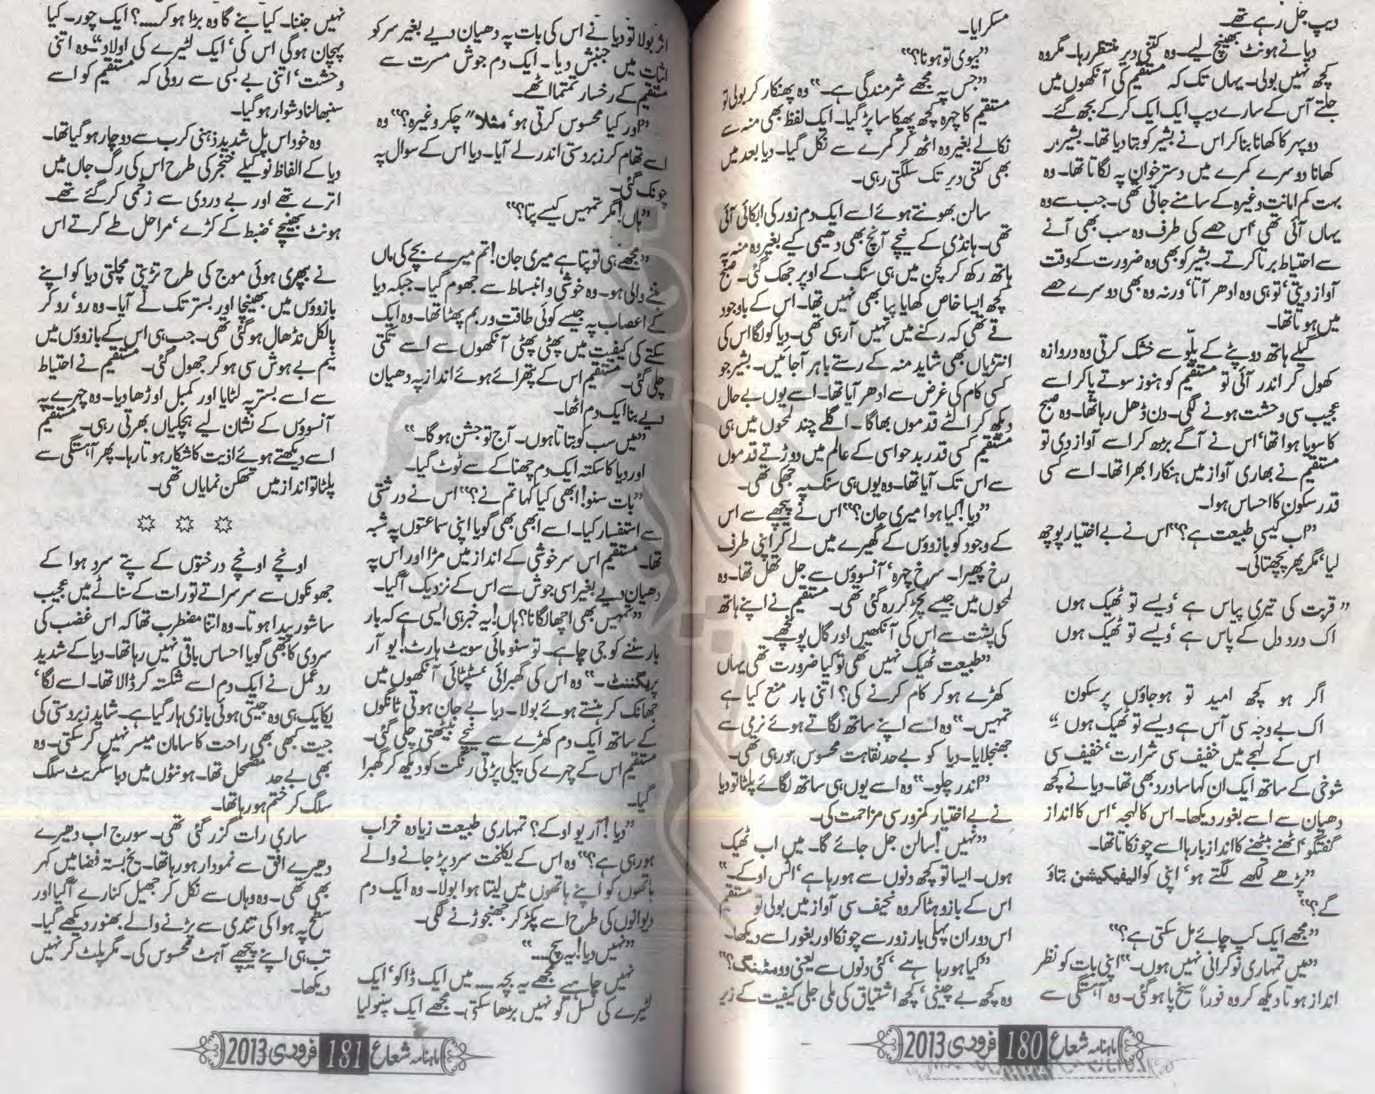 دیپ جل رہے تھے۔
دیا نے ہونٹ بھینچ لیے۔ وہ کتنی دیر منتظر رہا۔ مگر وہ
کچھ نہیں بولی۔ یہاں تک کہ مستقیم کی آنکھوں میں
جلتے آس کے سارے دیپ ایک ایک کر کے بجھ گئے۔
دوپہر کا کھانا بنا کر اس نے بشیر کو بتا دیا تھا۔ بشیر ہر
کھانا دوسرے کمرے میں دسترخوان پہ لگاتا تھا۔ وہ
بہت کم امانت وغیرہ کے سامنے جاتی تھی۔ جب سے وہ
یہاں آئی تھی، اس حصے کی طرف وہ سب بھی آنے
سے احتیاط برتا کرتے۔ بشیر کو بھی وہ ضرورت کے وقت
آواز دیتی، تو ہی وہ ادھر آتا، ورنہ وہ بھی دوسرے حصے
میں ہوتا تھا۔
گیلے ہاتھ دوپٹے کے پلو سے خشک کرتی وہ دروازہ
کھول کر اندر آئی تو مستقیم کو ہنوز سوتے پا کر اسے
عجیب سی وحشت ہونے لگی۔ دن ڈھل رہا تھا۔ وہ صبح
کا سویا ہوا تھا، اس نے آگے بڑھ کر اسے آواز دی تو
مستقیم نے بھاری آواز میں ہنکارا بھرا تھا۔ اسے کسی
قدر سکون کا احساس ہوا۔
"اب کیسی طبیعت ہے؟" اس نے بے اختیار پوچھ
لیا، مگر پھر پچھتائی۔
"قربت کی تیری پیاس ہے، ویسے تو ٹھیک ہوں
اک درد دل کے پاس ہے، ویسے تو ٹھیک ہوں
اگر ہو کچھ امید تو ہو جاؤں پر سکون
اک بے وجہ سی آس ہے ویسے تو ٹھیک ہوں"
اس کے لہجے میں خفیف سی شرارت، خفیف سی
شوخی کے ساتھ ایک ان کہا سا درد بھی تھا۔ دیا نے کچھ
دھیان سے اسے بغور دیکھا۔ اس کا لہجہ، اس کا انداز
گفتگو، اٹھنے بیٹھنے کا انداز بارہا اسے چونکاتا تھا۔
"پڑھے لکھے لگتے ہو، اپنی کوالیفیکیشن بتاؤ
گے؟"
"مجھے ایک کپ چائے مل سکتی ہے؟"
"میں تمہاری نوکرانی نہیں ہوں۔" اپنی بات کو نظر
انداز ہوتا دیکھ کر وہ فوراً تیخ پا ہو گئی۔ وہ آہستگی سے
مسکرایا۔
"بیوی تو ہونا؟"
"جس پہ مجھے شرمندگی ہے۔" وہ پھنکار کر بولی تو
مستقیم کا چہرہ کچھ پھیکا سا پڑ گیا۔ ایک لفظ بھی منہ سے
نکالے بغیر وہ اٹھ کر کمرے سے نکل گیا۔ دیا بعد میں
بھی کتنی دیر تک سلگتی رہی۔
سالن بھونتے ہوئے اسے ایک دم زور کی ابکائی آئی
تھی۔ ہانڈی کے نیچے آنچ بھی دھیمی کیے بغیر وہ منہ پہ
ہاتھ رکھ کر کچن میں ہی سنک کے اوپر جھک گئی۔ صبح
کچھ ایسا خاص کھایا پیا بھی نہیں تھا۔ اس کے باوجود
قے تھی کہ رکنے میں نہیں آ رہی تھی۔ دیا کو لگا اس کی
انتڑیاں بھی شاید منہ کے رستے باہر آ جائیں۔ بشیر جو
کسی کام کی غرض سے ادھر آیا تھا۔ اسے یوں بے حال
دیکھ کر الٹے قدموں بھاگا۔ اگلے چند لمحوں میں ہی
مستقیم کسی قدر بدحواسی کے عالم میں دوڑتے قدموں
سے اس تک آیا تھا۔ وہ یوں ہی سنک پہ جھکی تھی۔
"دیا! کیا ہوا میری جان؟" اس نے پیچھے سے اس
کے وجود کو بازوؤں کے گھیرے میں لے کر اپنی طرف
رخ پھیرا۔ سرخ چہرہ، آنسوؤں سے جل تھل تھا۔ وہ
لمحوں میں جیسے نچڑ کر رہ گئی تھی۔ مستقیم نے اپنے ہاتھ
کی پشت سے اس کی آنکھیں اور گال پونچھے۔
"طبیعت ٹھیک نہیں تھی تو کیا ضرورت تھی یہاں
کھڑے ہو کر کام کرنے کی؟ اتنی بار منع کیا ہے
تمہیں۔" وہ اسے اپنے ساتھ لگاتے ہوئے نرمی سے
جھنجلایا۔ دیا کو بے حد نقاہت محسوس ہو رہی تھی۔
"اندر چلو۔" وہ اسے یوں ہی ساتھ لگائے پلٹا تو دیا
نے بے اختیار کمزور سی مزاحمت کی۔
"نہیں! سالن جل جائے گا۔ میں اب ٹھیک
ہوں۔ ایسا تو کچھ دنوں سے ہو رہا ہے، اٹس اوکے۔"
اس کے بازو ہٹا کر وہ نحیف سی آواز میں بولی تو مستقیم
اس دوران پہلی بار زور سے چونکا اور بغور اسے دیکھا۔
"کیا ہو رہا ہے، کئی دنوں سے یعنی وومٹنگ؟"
وہ کچھ بے چینی، کچھ اشتیاق کی ملی جلی کیفیت کے زیر
ماہنامہ شعاع 180 فروری 2013
اثر بولا تو دیا نے اس کی بات پہ دھیان دیے بغیر سر کو
اثبات میں جنبش دیا۔ ایک دم جوش مسرت سے
مستقیم کے رخسار تمتما اٹھے۔
"اور کیا محسوس کرتی ہو، مثلاً "چکر وغیرہ؟" وہ
اسے تھام کر زبردستی اندر لے آیا۔ دیا اس کے سوال پہ
چونک گئی۔
"ہاں! مگر تمہیں کیسے پتا؟"
"مجھے ہی تو پتا ہے میری جان! تم میرے بچے کی ماں
بننے والی ہو۔ وہ خوشی و انبساط سے جھوم گیا۔ جبکہ دیا
کے اعصاب پہ جیسے کوئی طاقت ور بم پھٹا تھا۔ وہ ایک
سکتے کی کیفیت میں پھٹی پھٹی آنکھوں سے اسے تکتی
چلی گئی۔ مستقیم اس کے پتھرائے ہوئے انداز پہ دھیان
دیے بنا ایک دم اٹھا۔
"میں سب کو بتاتا ہوں۔ آج تو جشن ہو گا۔"
اور دیا کا سکتہ ایک دم چھناکے سے ٹوٹ گیا۔
"بات سنو! ابھی کیا کہا تم نے؟" اس نے درشتی
سے استفسار کیا۔ اسے ابھی بھی گویا اپنی سماعتوں پہ شبہ
تھا۔ مستقیم اس سرخوشی کے انداز میں مڑا اور اس پہ
دھیان دیے بغیر اسی جوش سے اس کے نزدیک آ گیا۔
"تمہیں بھی اچھا لگا نا؟ ہاں! یہ خبر ہی ایسی ہے کہ بار
بار سننے کو جی چاہے۔ تو سنو مائی سویٹ ہارٹ! یو آر
پریگننٹ۔" وہ اس کی گھبرائی، سٹپٹائی آنکھوں میں
جھانک کر ہنستے ہوئے بولا۔ دیا بے جان ہوتی ٹانگوں
کے ساتھ ایک دم کھڑے سے نیچے بیٹھتی چلی گئی۔
مستقیم اس کے چہرے کی پیلی پڑتی رنگت کو دیکھ کر گھبرا
گیا۔
"دیا! آر یو اوکے؟ تمہاری طبیعت زیادہ خراب
ہو رہی ہے؟" وہ اس کے یکلخت سرد پڑ جانے والے
ہاتھوں کو اپنے ہاتھوں میں لیتا ہوا بولا۔ وہ ایک دم
دیوانوں کی طرح اسے پکڑ کر جھنجوڑنے لگی۔
"نہیں دیا! یہ سچ۔۔"
نہیں چاہیے مجھے یہ بچہ۔۔۔۔ میں ایک ڈاکو، ایک
لٹیرے کی نسل کو نہیں بڑھا سکتی۔ مجھے ایک سنپولیا
نہیں جننا۔ کیا بنے گا وہ بڑا ہو کر۔۔۔۔؟ ایک چور۔ کیا
پہچان ہو گی اس کی، ایک لٹیرے کی اولاد"۔ وہ اتنی
وحشت، اتنی بے بسی سے روئی کہ مستقیم کو اسے
سنبھالنا دشوار ہو گیا۔
وہ خود اس پل شدید ذہنی کرب سے دوچار ہو گیا تھا۔
دیا کے الفاظ نوکیلے خنجر کی طرح اس کی رگ جاں میں
اترے تھے اور بے دردی سے زخمی کر گئے تھے۔
ہونٹ بھینچے، ضبط کے کڑے، مراحل طے کرتے اس
نے بپھری ہوئی موج کی طرح تڑپتی مچلتی دیا کو اپنے
بازوؤں میں بھینچا اور بستر تک لے آیا۔ وہ رو رو کر
بالکل نڈھال ہو گئی تھی۔ جب ہی اس کے بازوؤں میں
نیم بے ہوش سی ہو کر جھول گئی۔ مستقیم نے احتیاط
سے اسے بستر پہ لٹایا اور کمبل اوڑھا دیا۔ وہ چہرے پہ
آنسوؤں کے نشان لیے ہچکیاں بھرتی رہی۔ مستقیم
اسے دیکھتے ہوئے اذیت کا شکار ہوتا رہا۔ پھر آہستگی سے
پلٹا تو انداز میں تھکن نمایاں تھی۔
اونچے اونچے درختوں کے پتے سرد ہوا کے
جھونکوں سے سرسراتے تو رات کے سناٹے میں عجیب
سا شور پیدا ہوتا۔ وہ اتنا مضطرب تھا کہ اس غضب کی
سردی کا بھی گویا احساس باقی نہیں رہا تھا۔ دیا کے شدید
ردعمل نے ایک دم اسے شکستہ کر ڈالا تھا۔ اسے لگا،
یکایک ہی وہ جیتی ہوئی بازی ہار گیا ہے۔ شاید زبردستی کی
جیت کبھی بھی راحت کا سامان میسر نہیں کر سکتی۔ وہ
بھی بے حد مضمحل تھا۔ ہونٹوں میں دبا سگریٹ سلگ
سلگ کر ختم ہو رہا تھا۔
ساری رات گزر گئی تھی۔ سورج اب دھیرے
دھیرے افق سے نمودار ہو رہا تھا۔ یخ بستہ فضا میں کہر
بھی تھی۔ وہ وہاں سے نکل کر جھیل کنارے آ گیا اور
سطح پہ ہوا کی تندی سے پڑنے والے بھنور دیکھے گیا۔
تب ہی اپنے پیچھے آہٹ محسوس کی۔ مگر پلٹ کر نہیں
دیکھا۔
ماہنامہ شعاع 181 فروری 2013